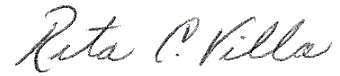 Rita C. Villa